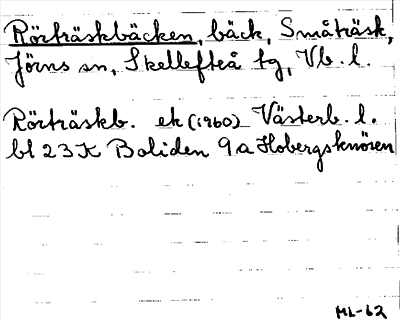 Rörträskbäcken, bäck, Småträsk,
Jörns sn, Skellefteå tg, Vb. l.
Rörträskb. ek (1960) Västerb. l.
bl 23K Boliden 9a Hobergsknösen
ML-62